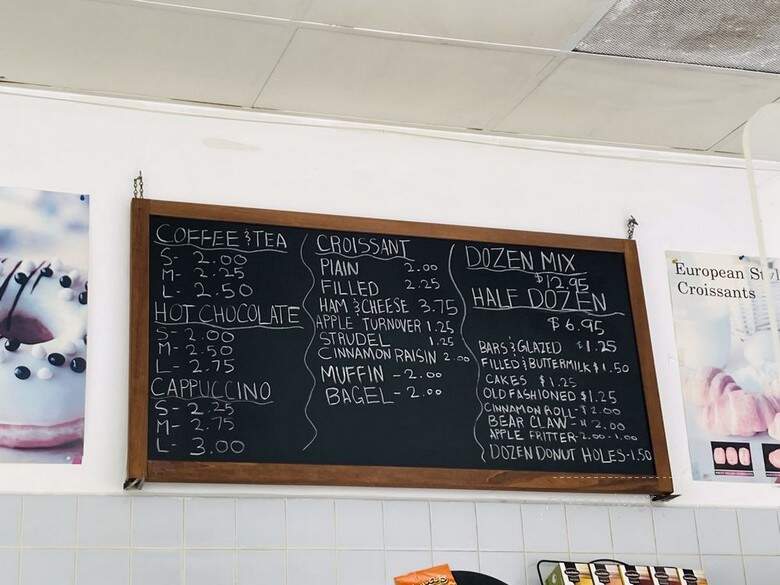 COFFEE & TEA
S- 2.00
M- 2.25
L- 2.50
HOT CHOCOLATE
S- 2.00
M- 2.50
L- 2.75
CAPPUCCINO
S- 2.25
M- 2.75
L- 3.00
CROISSANT
PLAIN 2.00
FILLED 2.25
HAM & CHEESE 3.75
APPLE TURNOVER 1.25
STRUDEL 1.25
CINNAMON RAISIN 2.00
MUFFIN - 2.00
BAGEL - 2.00
DOZEN MIX
$12.95
HALF DOZEN
$6.95
BARS & GLAZED $1.25
FILLED & BUTTERMILK $1.50
CAKES $1.25
OLD FASHIONED $1.25
CINNAMON ROLL - $2.00
BEAR CLAW - 2.00
APPLE FRITTER - 2.00 -
DOZEN DONUT HOLES - 1.50
European
Croissants